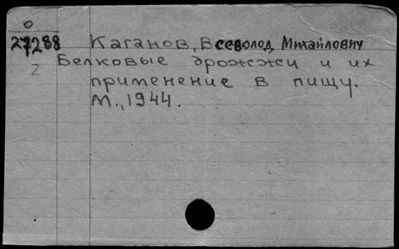 О
27288
Каганов, Всеволод Михайлович
2
Белковые дрожжи и их
применение в пищу.
М., 1944.